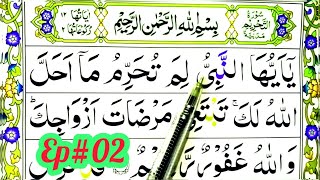 سُورَةُ التَّحْرِيْمِ مَدَنِيَّةٌ
بِسْمِ اللّٰهِ الرَّحْمٰنِ الرَّحِيْمِ
اٰيَاتُهَا ١٢
يٰۤاَيُّهَا النَّبِيُّ لِمَ تُحَرِّمُ مَاۤ اَحَلَّ
اللّٰهُ لَكَ ۚ تَبْتَغِيْ مَرْضَاتَ اَزْوَاجِكَ ؕ
وَاللّٰهُ غَفُوْرٌ رَّحِيْمٌ
Ep#02